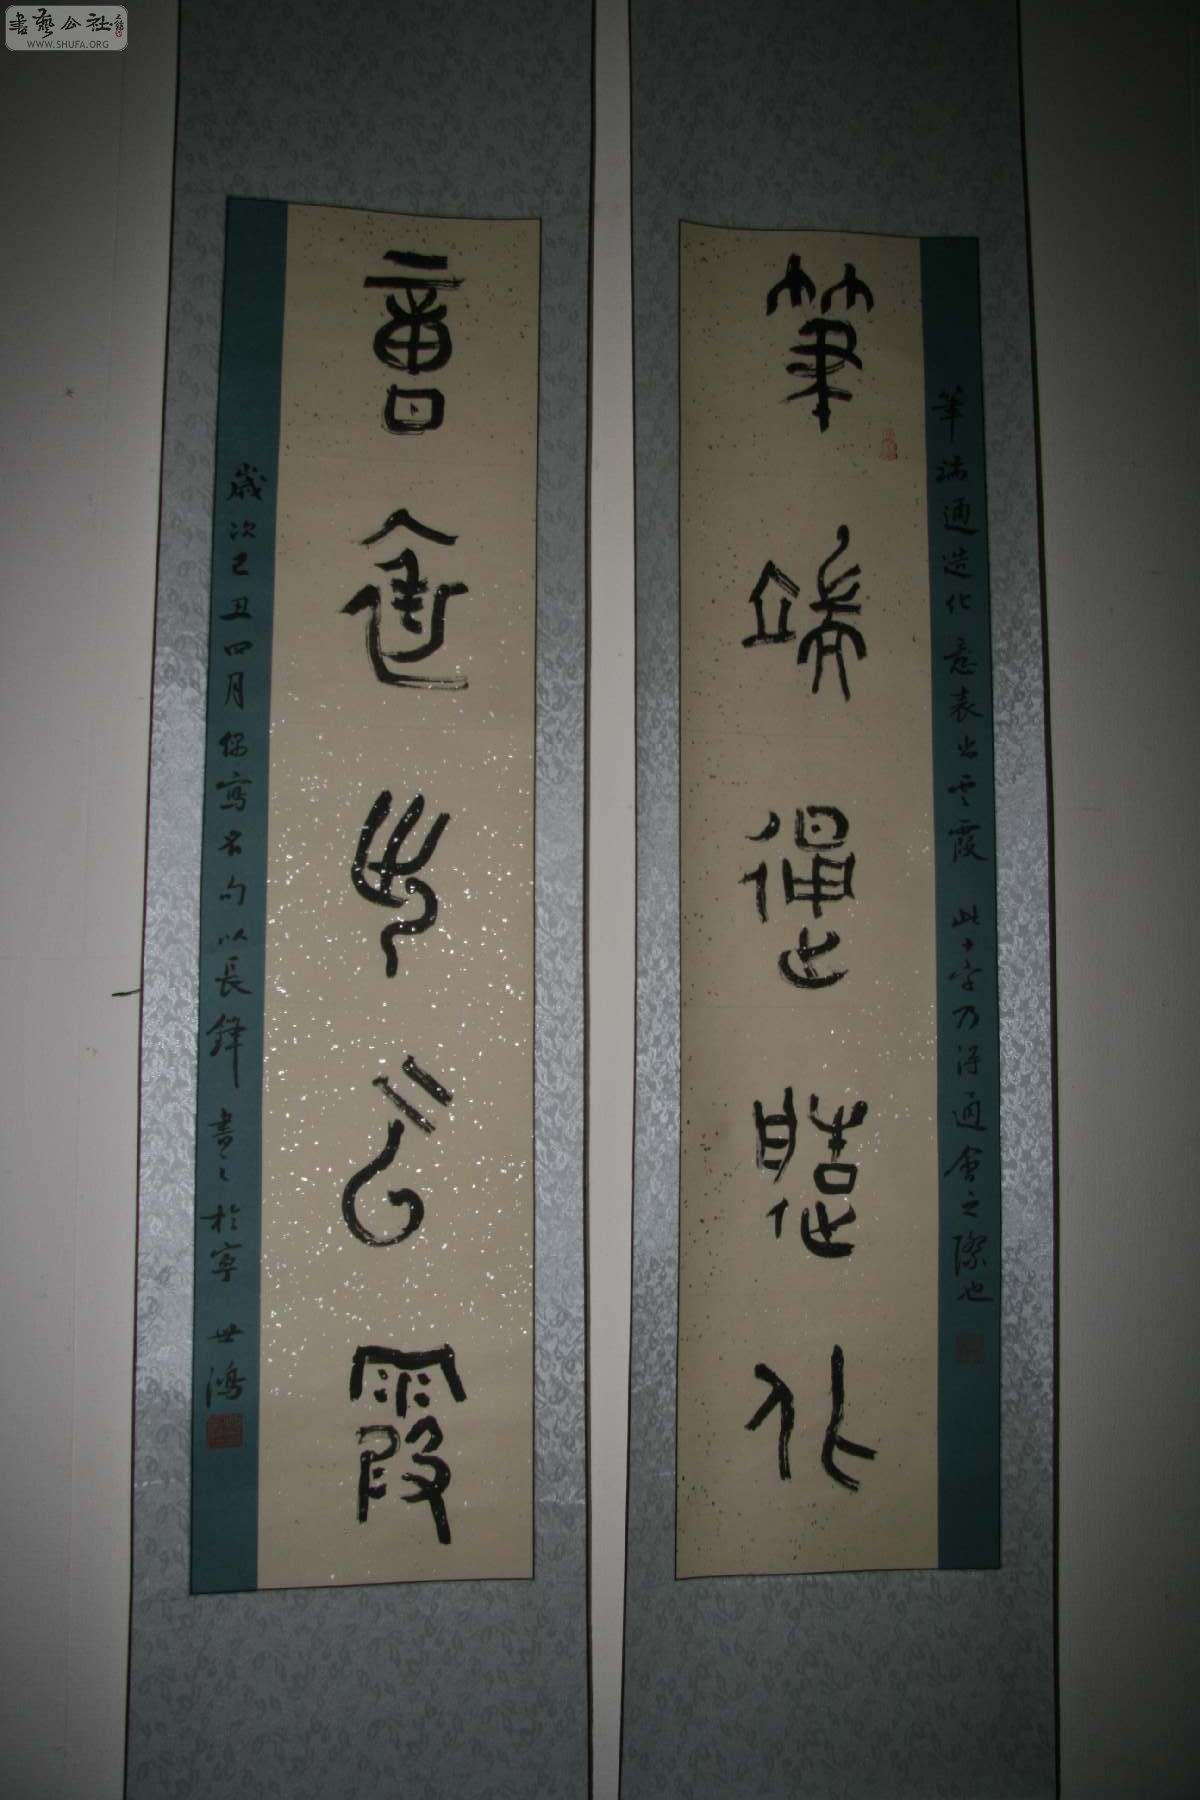 書藝公社
WWW.SHUFA.ORG
筆端通造化
筆端通造化 意表出雲霞 此十字乃得通會之際也
意表出云霞
歲次己丑四月 寫古句以長鋒書之於寧 世鴻